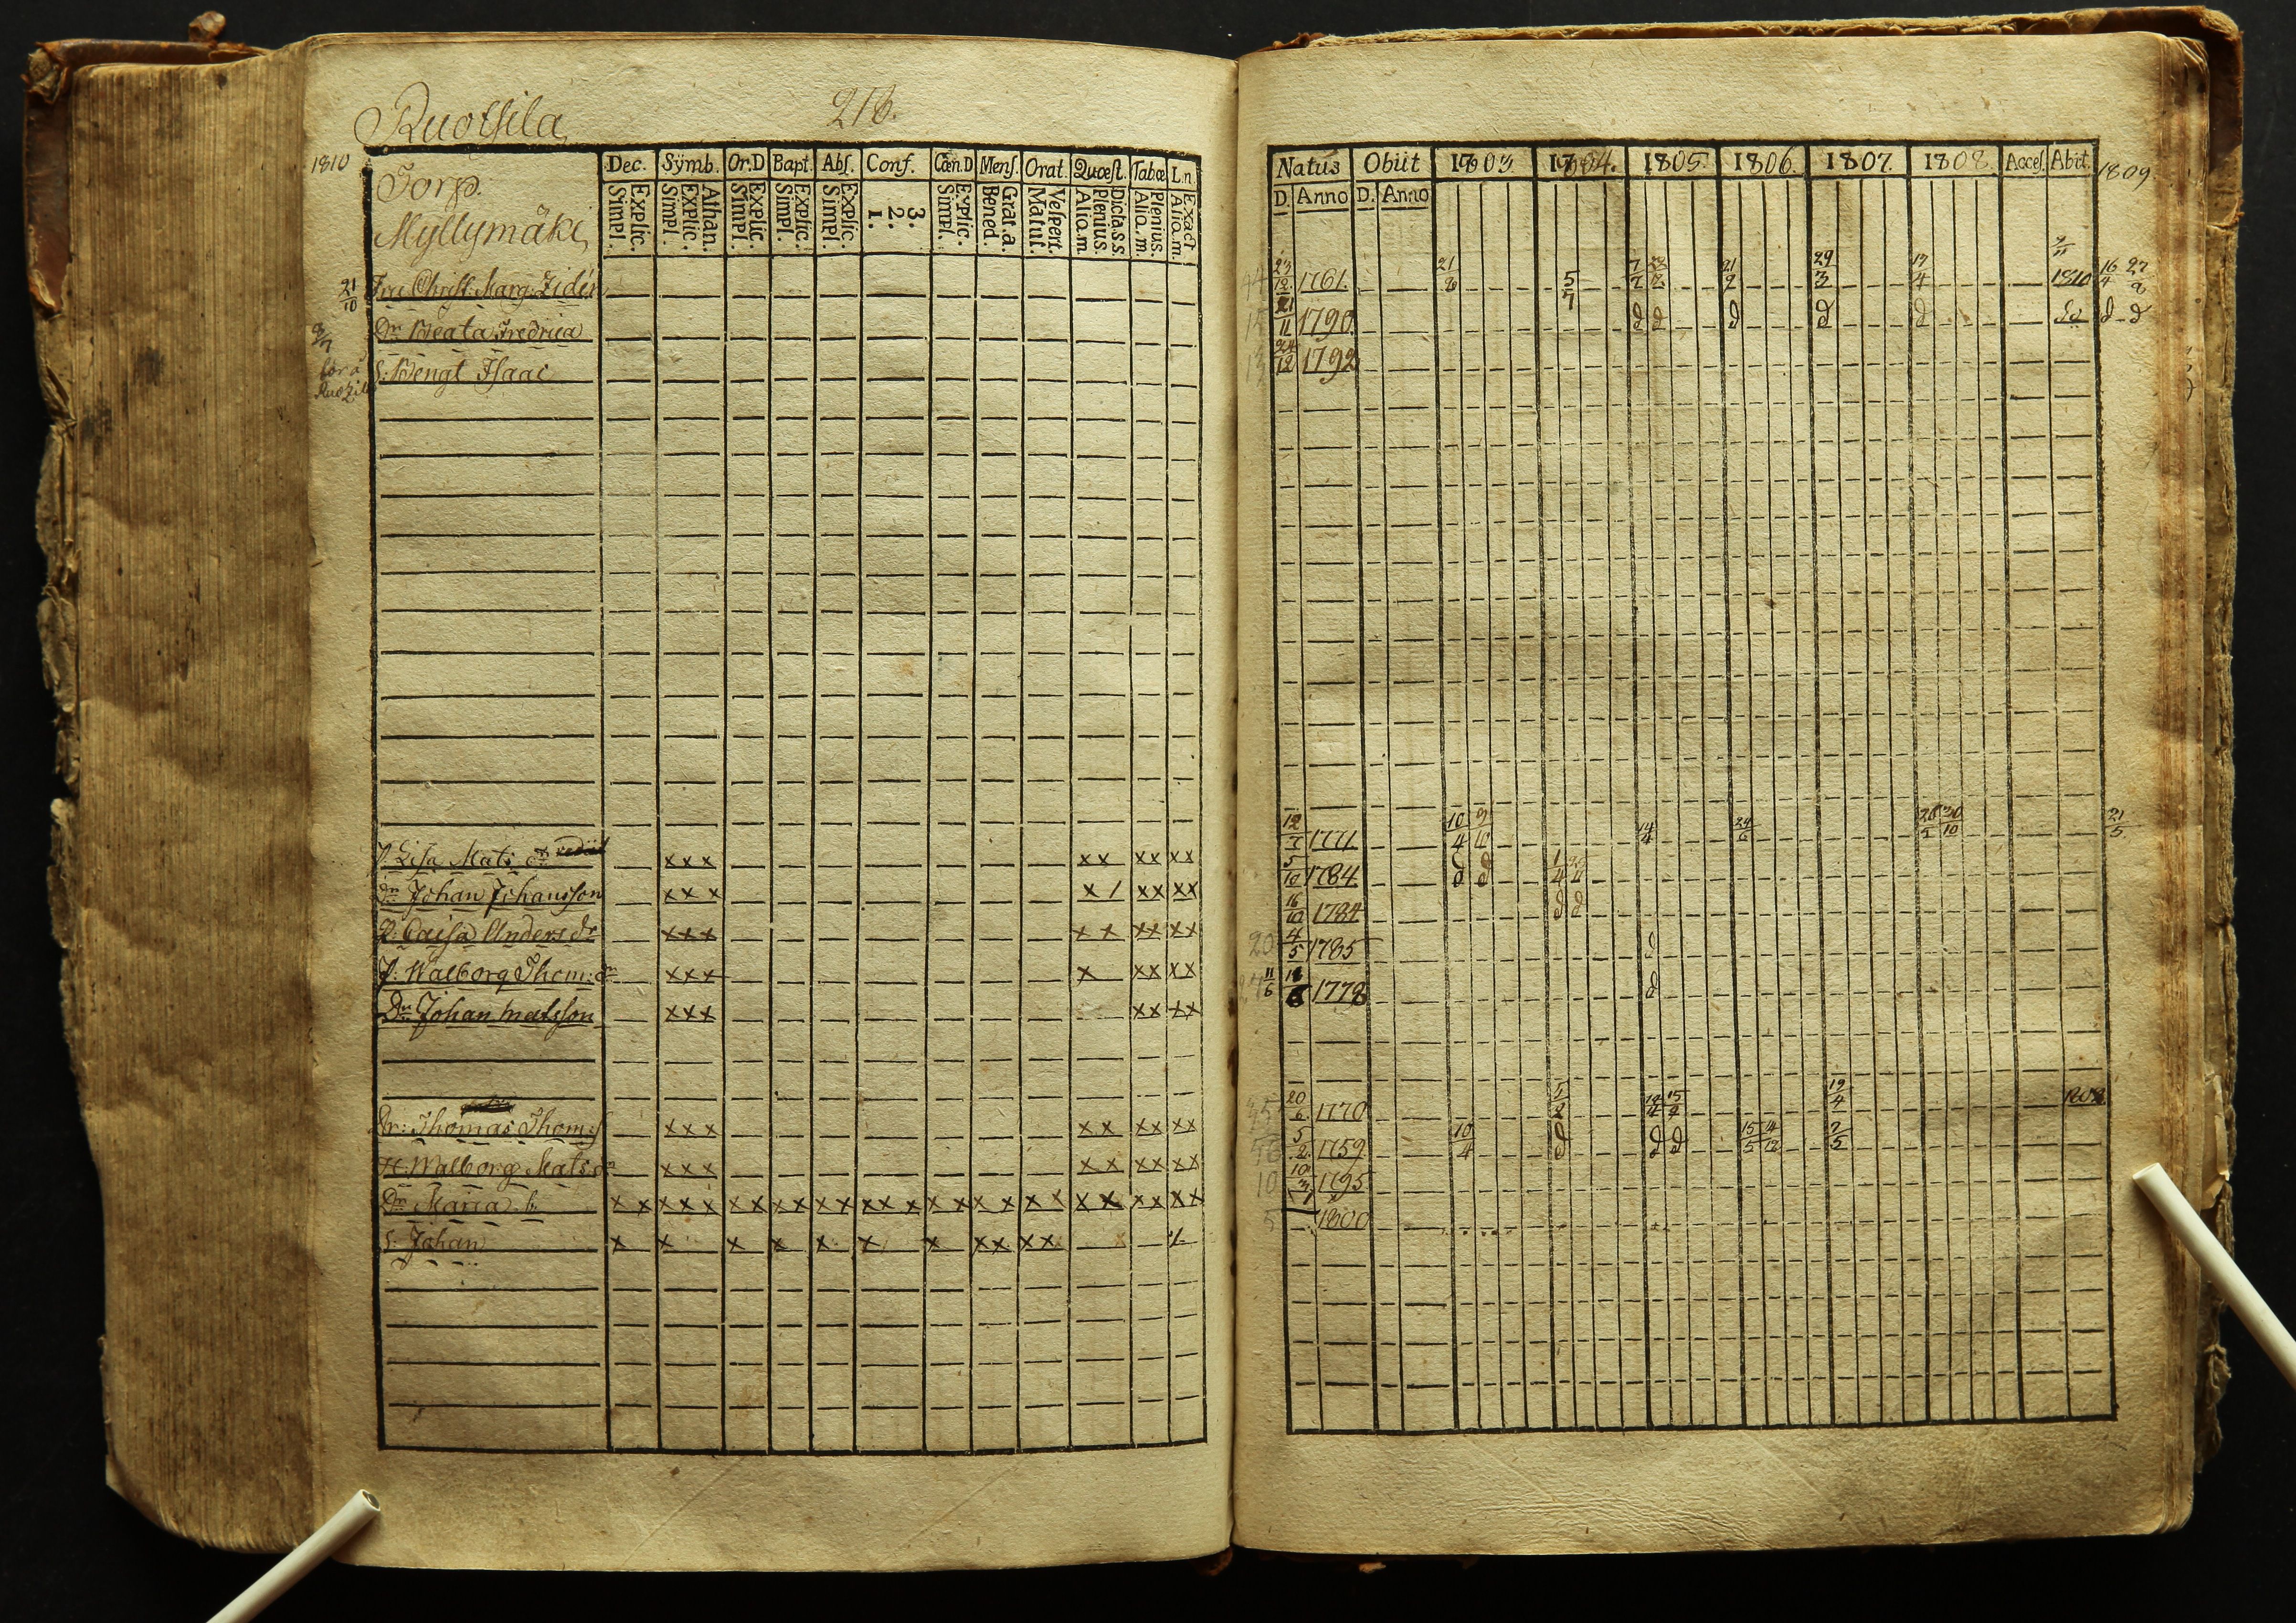 Ruotsila
216.
1810
Torp.
Myllymäki
Dec. Symb. Or.D Bapt. Abs. Conf. Cœn.D Mens. Orat. Quæst. Tabœ L.n
Explic. Simpl.
Athan. Explic. Simpl.
Explic. Simpl.
Explic. Simpl.
Explic. Simpl.
3. 2. 1.
Explic. Simpl.
Grat. a. Bened.
Vespert. Matut.
Dicta.s.s. Plenius. Aliq.m
Plenius. Aliq.m.
Exact Aliq.m.
21/10 Fru Christ. Marg. Zidén
Dr Beata Fredrica
S: Bengt Isaac
P. Lisa Mats dr
xxx xx xx xx
Dn Johan Johansson
xxx x/ xx xx
P. Caisa Anders dr
xxx xx xx xx
P. Walborg Thom: dr
xxx x xx xx
Dn Johan Matsson
xxx xx xx
Dr: Thomas Thom:s
xxx xx xx xx
H. Walborg Mats dr
xxx xx xx xx
Dr Maria
xx xxx xx xx xx xxx xx xx xx xx xx xx
S. Johan
x x x x x x x xx xx
Natus Obiit 1803 1804. 1805. 1806. 1807. 1808. Acces. Abit. 1809
D. Anno D. Anno
23/12 1761. 21/8 5/7 21/2 29/3 17/4 1810 16/4
15 21/11 1790 d d d d d do d d
13 24/12 1792
12/7 1771 10/4 14/4 24/6 30/10 21/5
5/10 1784 d d
16/10 1784 d d
20 4/5 1785 d
11/6 1778 d
35 20/6 1770 15/4 19/4 1808
5/2 1759 10/4 d d d 15/5 14/12 7/5
10 10/3 1795
5 1800